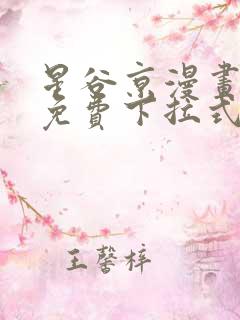 星谷京漫畫
免費下拉式
王馨梓